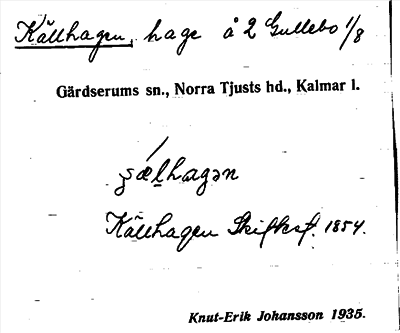 Källhagen, hage å 2 Gullebo 1/8
Gärdserums sn., Norra Tjusts hd., Kalmar l.
ʂæ̀l̠hagən
Källhagen Skifteskf. 1854.
Knut-Erik Johansson 1935.